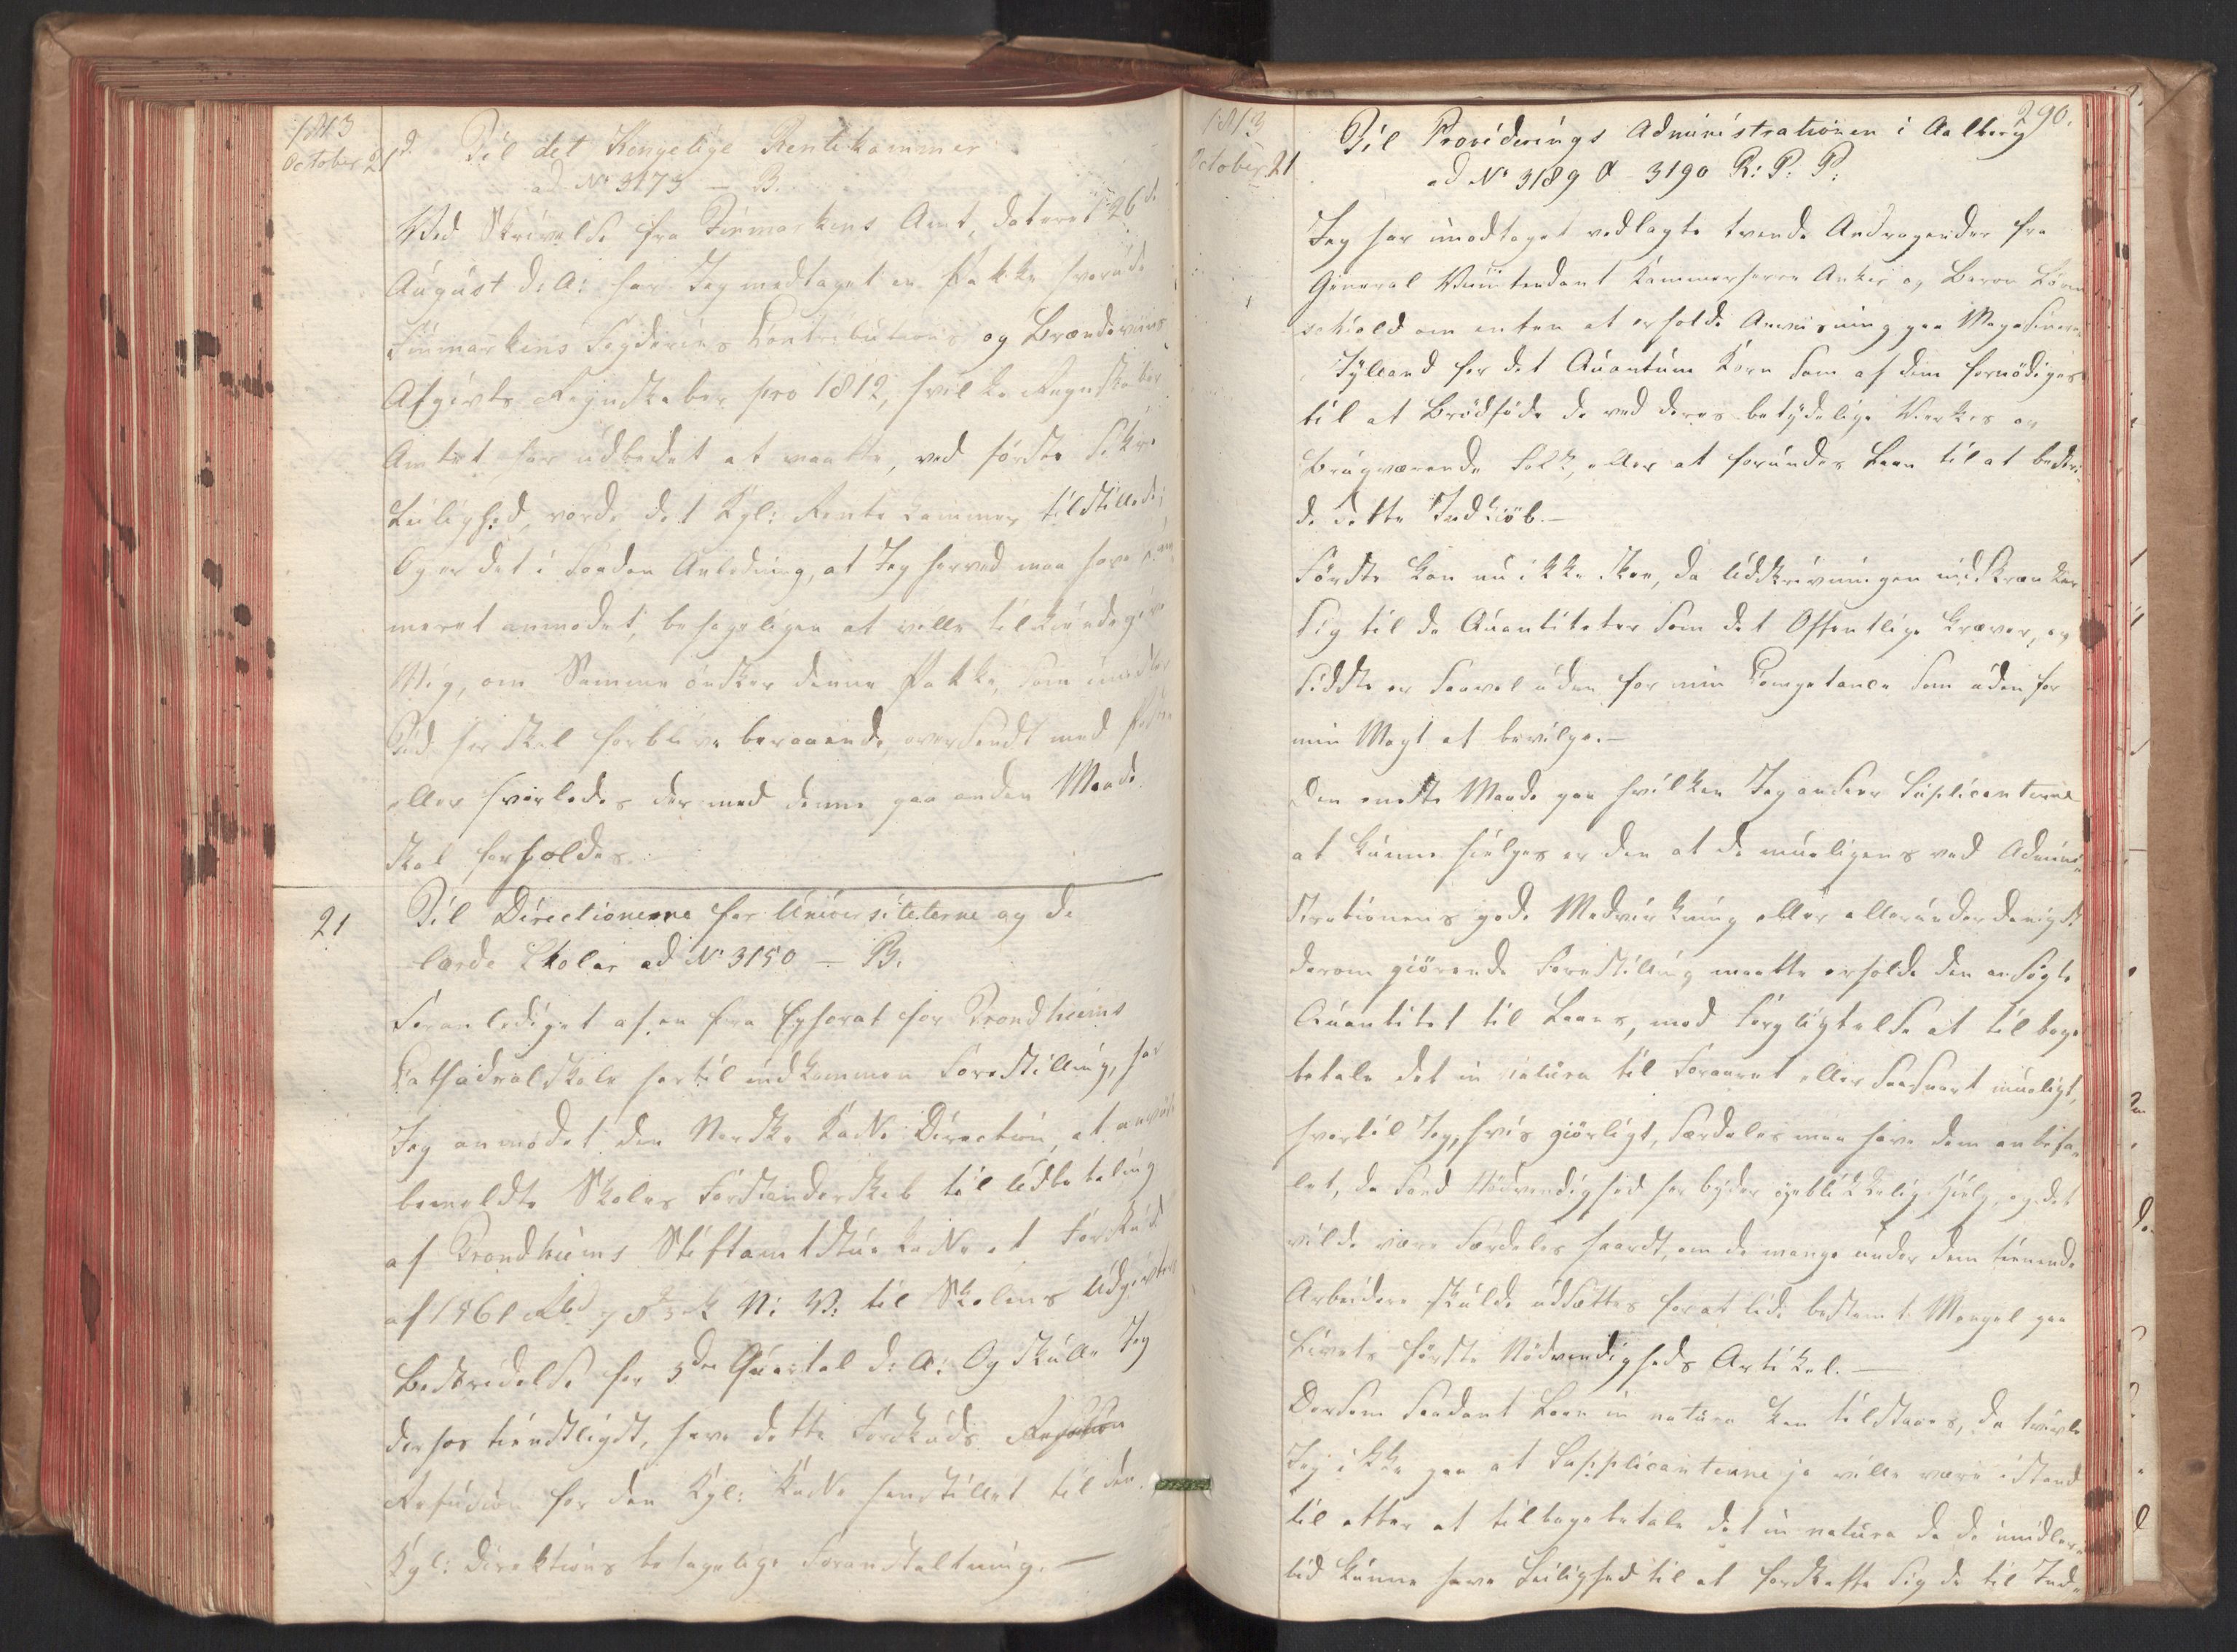 1813
October 21
d. Til det Kongelige Rentekammer
ad No 3173 – B.
Ved Skrivelse fra Finmarkens Amt, dateret 26de
August d: A: har Jeg modtaget en Pakke hvorudi
Finmarkens Fogderies Contributions og Brændeviins
Afgivts Regnskaber pro 1812, hvilke Regnskaber
Amtet har udbedet at maatte, ved første sikre
Leilighed, vorde det Kgl: Rentekammer tilstillede;
Og er det i saadan Anledning, at Jeg herved maa have
meret anmodet, behageligen at ville tilkiendegive
Mig, om Samme ønsker denne Pakke, som imidler
Tid her skal forblive beroende, oversendt med Posten
eller hvorledes der med denne paa anden Maade
skal forholdes.
21
Til Directionerne for Universiteterne og de
lærde Skoler ad No 3150 – B.
Foranlediget af en fra Ephorat for Trondhiems
Cathedralskole hertil indkommen Forestilling, har
Jeg anmodet den Norske Kasse Direction, at anviise
bemeldte Skoles Forstanderskab til Udbetaling
af Trondhiems Stiftamtstue Kasse et Forskud
af 1861 Rbd N: V: til Skolens Udgivters
Bestridelse for 3die Quartal d: A: Og skulle Jeg
derhos tienstligst, have dette Forskuds
Refusion for den Kgl: Kasse henstillet til den
Kgl: Direktions behagelige Foranstaltning. –
1813
October 21
290.
Til Provideerings Administrationen i Aalborg
ad No 3189 & 3190 R: P: P:
Jeg har modtaget vedlagte tvende Andragender fra
General Kammerherre Anker og Baron Løven
schiold om enten at erholde Anviisning paa Magasinerne
Jylland for det Quantum Korn som af dem fornødiges
til at Brødføde de ved deres betydelige Værker og
Brugværende Folk, eller at forundes Laan til at bestri-
de dette Indkiøb. –
Første kan nu ikke skee, da Udskrivningen indskrænker
sig til de Quantiteter som det Offentlige kræver, og
sidste er saavel uden for min Competance som uden for
min Magt at bevilge. –
Den eneste Maade paa hvilken Jeg anseer Suplicanterne
at kunne hielpes er den at de mueligens ved Admini-
strationens gode Medvirkning eller allerunderdanigst
derom giørende Forestilling maatte erholde den ansøgte
Quantitet til Laans, mod Forpligtelse at tilbage
betale det in natura til Foraaret eller saasnart mueligt,
hvortil Jeg, hvis giørligt, særdeles maa have dem anbefa-
let, da sand Nødvendighed her byder øieblikkelig Hielp, og det
vilde være særdeles haardt, om de mange under dem tienende
Arbeidere skulde udsættes for at lide bestemt Mangel paa
Livets første Nødvendigheds Artikel. –
Dersom saadant Laan in natura kan tilstaaes, da tvivler
Jeg ikke paa at Supplicanterne jo ville være istand
til atter at tilbagebetale det in natura da de imidler-
tid kunne have Leilighed til at forskaffe sig de til Ind-